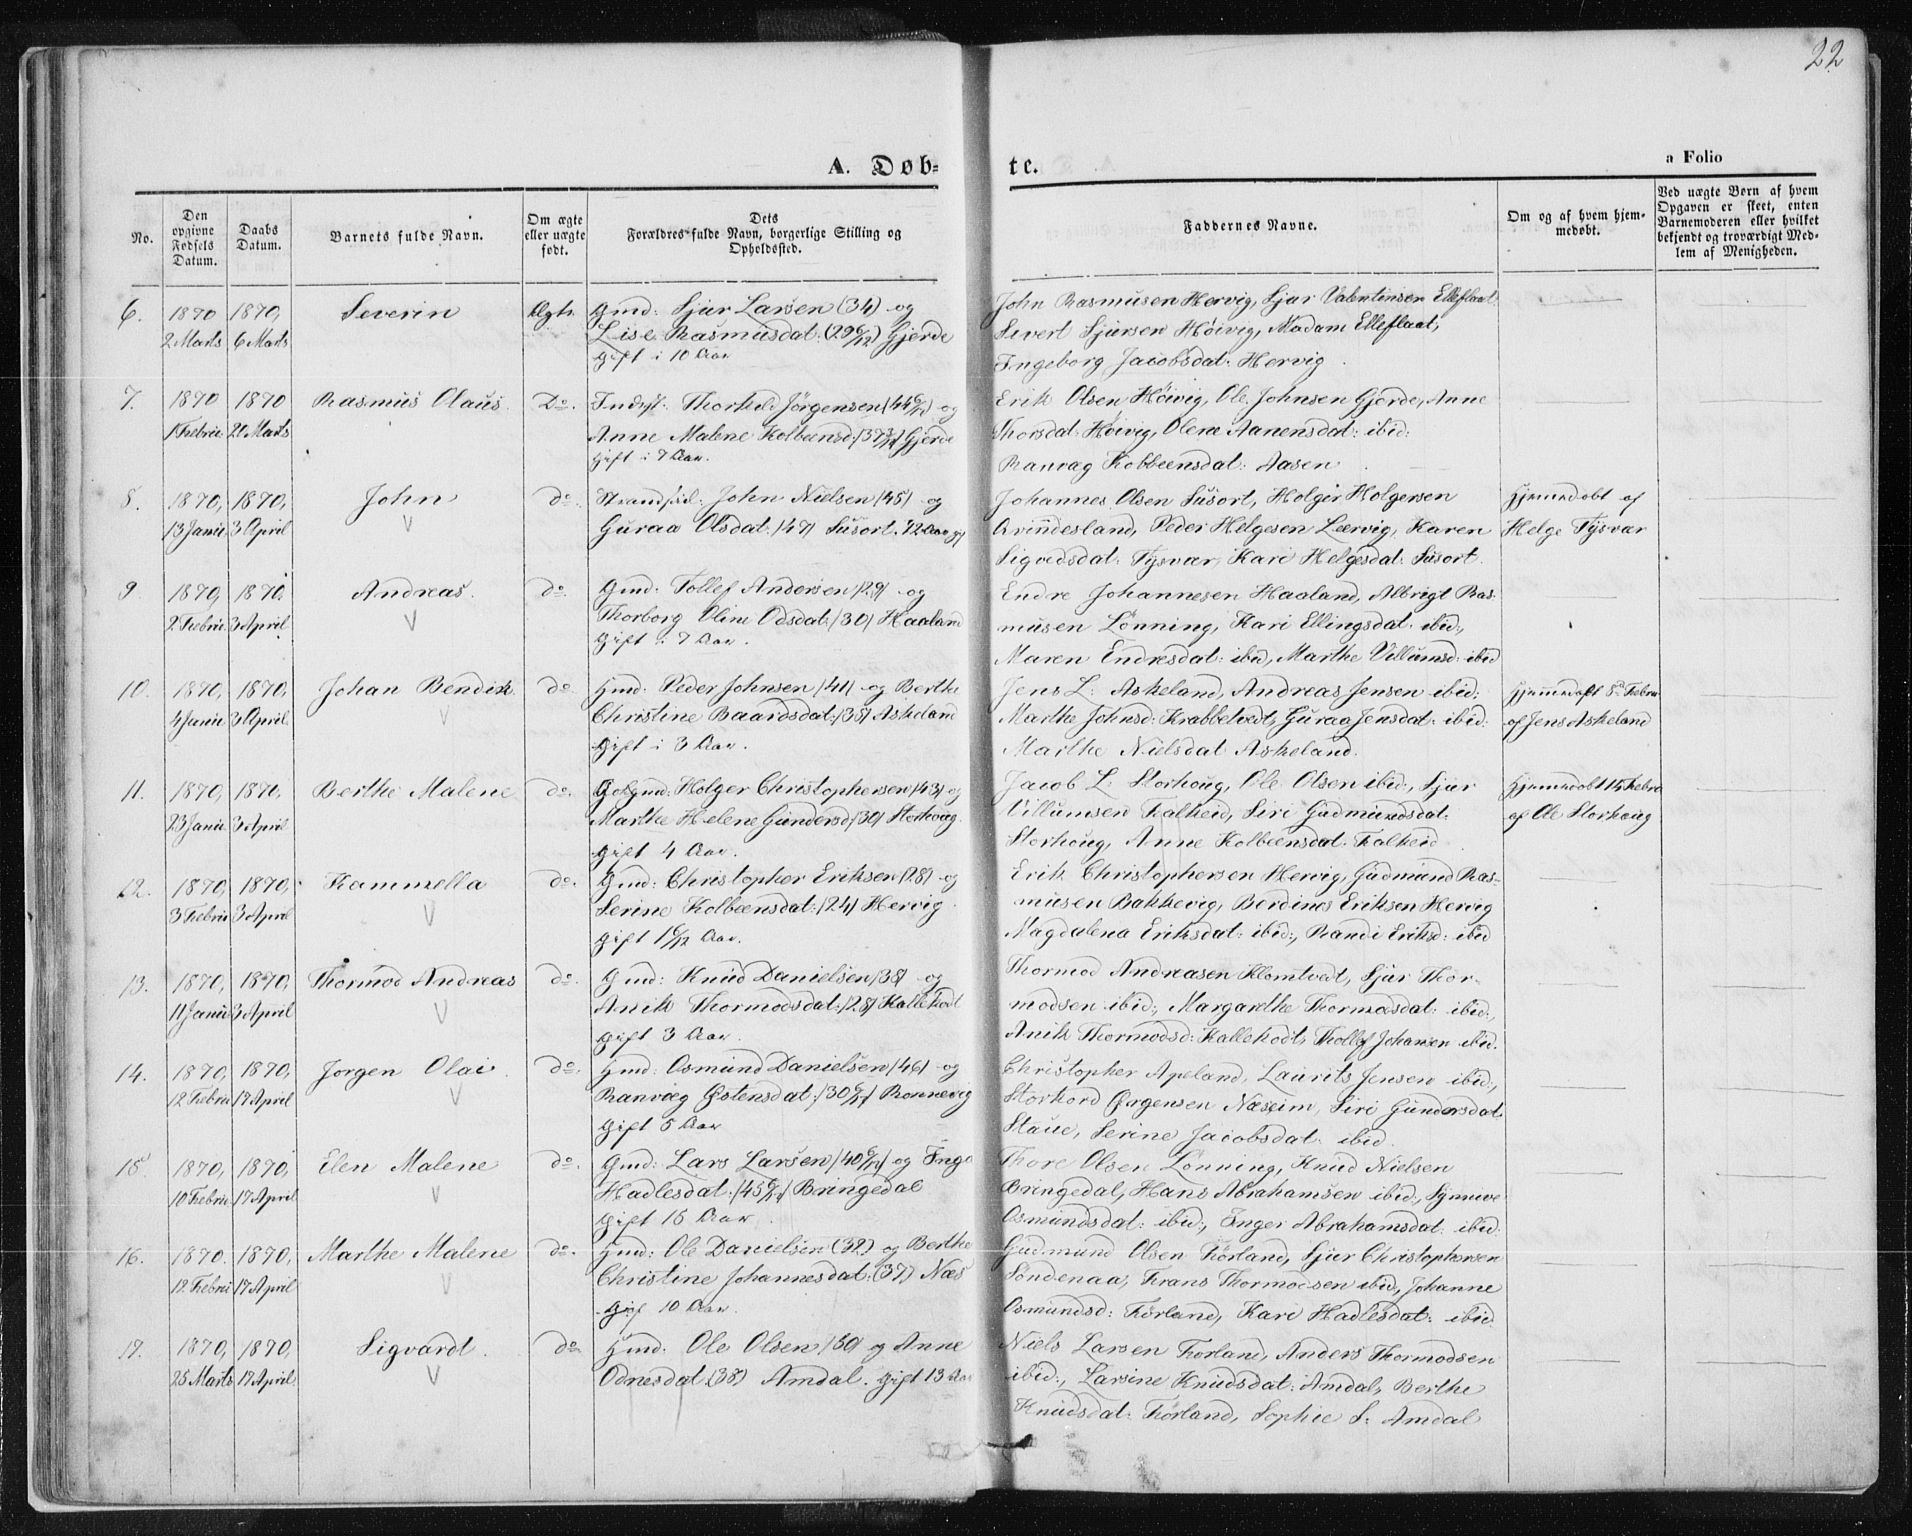 22
A. Døb-
te.
a Folio
No.
Den opgivne Fødsels Datum.
Daabs Datum.
Barnets fulde Navn.
Om ægte eller uægte født.
Dets Forældres fulde Navn, borgerlige Stilling og Opholdssted.
Faddernes Navne.
Om og af hvem hjemmedøbt.
Ved uægte Børn af hvem Opgaven er skeet, enten Barnemoderen eller hvilket bekjendt og troværdigt Medlem af Menigheden.
6. 1870 1870, Severin Ægte. Gmd: Sjur Larsen (34) og
2 Marts 6 Marts Lise Rasmusdat: (29 6/12) Gjerde
Gift i 10 Aar
John Rasmusen Hervig, Sjur Valentinsen Elleflaat
Sivert Sjursen Høivig, Madam Elleflaat,
Ingeborg Jacobsdat. Hervig
7. 1870 1870 Rasmus Olaus. Do. Inderst: Thorkel Jørgensen (44 6/12) og
1 Febru 20 Marts Anne Malene Kolbeensd: (37 3/12) Gjerde
Gift i 7 Aar.
Erik Olsen Høivig, Ole Johnsen Gjerde, Anne
Thorsdat: Høivig, Olene Aanensdat: ibid:
Ranvag Kobbeensdat: Aasen
8. 1870, 1870, John do. Strandsid: John Nielsen (45) og
13 Janu. 3 April V Guraa Olsdat: (47) Susort. 12 Aar g.
Johannes Olsen Susort, Holger Holgersen
Qvindesland, Peder Helgesen Lærvig, Karen
Sigvedsdat: Tysvær, Kari Helgesdat: Susort.
Hjemmedøbt af
Helge Tysvær
9. 1870, 1870, Andreas. do. Gmd: Tollef Andersen (29) og
2 Febru 3 April V Thorborg Oline Odsdat: (30) Haaland
Gift i 7 Aar.
Endre Johannesen Haaland, Albrigt Ras-
musen Lønning, Kari Ellingsdat. ibid:,
Maren Endresdat: ibid, Marthe Villumsd: ibid
10. 1870, 1870, Johan Bendik do. Hmd: Peder Johnsen (41) og Berthe
4 Janu 3 April V Christine Baardsdat: (38) Askeland
Gift i 3 Aar.
Jens L: Askeland, Andreas Jensen ibid:
Marthe Johnsd: Krabbetvedt, Guraa Jensdat: ibid:
Marthe Nielsdat Askeland.
Hjemmedøbt 8de Febru
af Jens Askeland
11. 1870, 1870, Berthe Malene do. Gmd: Holger Christophersen (43) og
23 Janu 3 April Marthe Helene Gundersd (30) Storhoug.
Gift 4 Aar.
Jacob L: Storhoug, Ole Olsen ibid:, Sjur
Villumsen Falkeid, Siri Gudmundsdat:
Storhoug, Anne Kolbeensdat Falkeid
Hjemmedøbt 15 Febru
af Ole Storhoug
12. 1870, 1870, Kammella do. Gmd: Christopher Eriksen (28) og
3 Febru 3 April V Serine Kolbeensdat: (24) Hervig
Gift 1 6/12 Aar.
Erik Christophersen Hervig, Gudmund Ras-
musen Bakkevig, Berdines Eriksen Hervig
Magdalena Eriksdat: ibid:, Randi Eriksd: ibid
13. 1870, 1870, Thormod Andreas do. Gmd: Knud Danielsen (38) og
11 Janu 3 April V Anik Thormodsdat: (28) Kallekodt
Gift 3 Aar.
Thormod Andreasen Klomtvedt, Sjur Thor-
modsen ibid:, Margarethe Thormodsdat: ibid:,
Anik Thormodsd: Kallekodt, Thollef Johansen ibid.
14. 1870, 1870, Jørgen Olai do. Hmd: Osmund Danielsen (46) og
12 Febru 17 April V Ranvæg Østensdat: (30 6/12) Ronnevig
Gift 5 Aar
Christopher Apeland, Laurits Jensen ibid:,
Storkord Ørgensen Næseim, Siri Gundersdat
Staue, Serine Jacobsdat: ibid.
15. 1870, 1870, Elen Malene do. Gmd: Lars Larsen (40 6/12) og Inge
10 Febru 17 April V Hadlesdat: (45 6/12) Bringedal
Gift 15 Aar.
Thore Olsen Lønning, Knud Nielsen
Bringedal, Hans Abrahamsen ibid:, Synneve
Osmundsdat: ibid:, Inger Abrahamsdat: ibid:
16. 1870. 1870, Marthe Malene do. Hmd: Ole Danielsen (32) og Berthe
12 Febru 17 April V Christine Johannesdat: (37) Næs
Gif 10 Aar.
Gudmund Olsen Førland, Sjur Christophersen
Søndenaa, Frans Thormodsen ibid, Johanne
Osmundsd: Førland, Kari Hadlesdat: ibid.
17. 1870, 1870, Sigvardt. do. Hmd: Ole Olsen (50) og Anne
25 Marts 17 April V Odnesdat (38) Amdal. Gift 13 Aar
Niels Larsen Førland, Anders Thormodsen
ibid:, Larsine Knudsdat: Amdal, Berthe
Knudsdat: Førland, Sophie S: Amdal